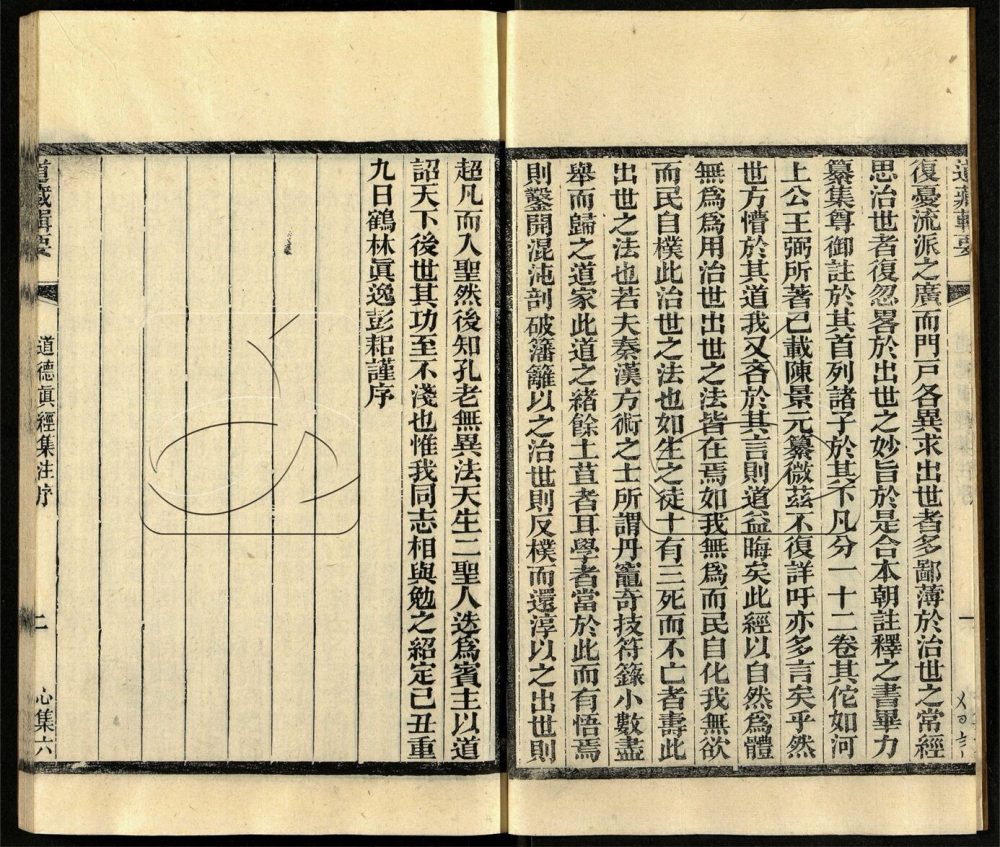 道藏輯要
復憂流派之廣而門戸各異求出世者多鄙薄於治世之常經
思治世者復忽畧於出世之妙旨於是合本朝註釋之書畢力
纂集尊御註於其首列諸子於其下凡分一十二卷其佗如河
上公王弼所著已載陳景元纂微茲不復詳吁亦多言矣乎然
世方懵於其道我又吝於其言則道益晦矣此經以自然爲體
無爲爲用治世出世之法皆在焉如我無爲而民自化我無欲
而民自樸此治世之法也如生之徒十有三死而不亡者壽此
出世之法也若夫秦漢方術之士所謂丹竈奇技符籙小數盡
舉而歸之道家此道之緒餘土苴者耳學者當於此而有悟焉
則鑿開混沌剖破籓籬以之治世則反樸而還淳以之出世則
超凡而入聖然後知孔老無異法天生二聖人迭爲賓主以道
詔天下後世其功至不淺也惟我同志相與勉之紹定己丑重
九日鶴林眞逸彭耜謹序
道藏輯要 道德眞經集注序 二 心集六